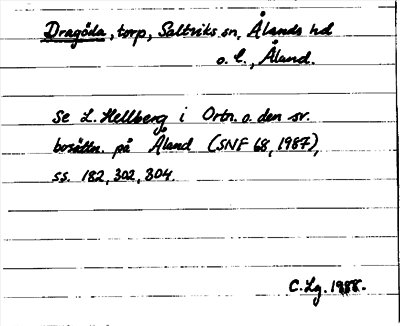 Dragöda, torp, Saltviks sn, Ålands hd
o. l., Åland.
Se L. Hellberg i Ortn. o. den sv.
bosättn. på Åland (SNF 68, 1987),
ss. 182, 302, 304.
C. Lg. 1988.